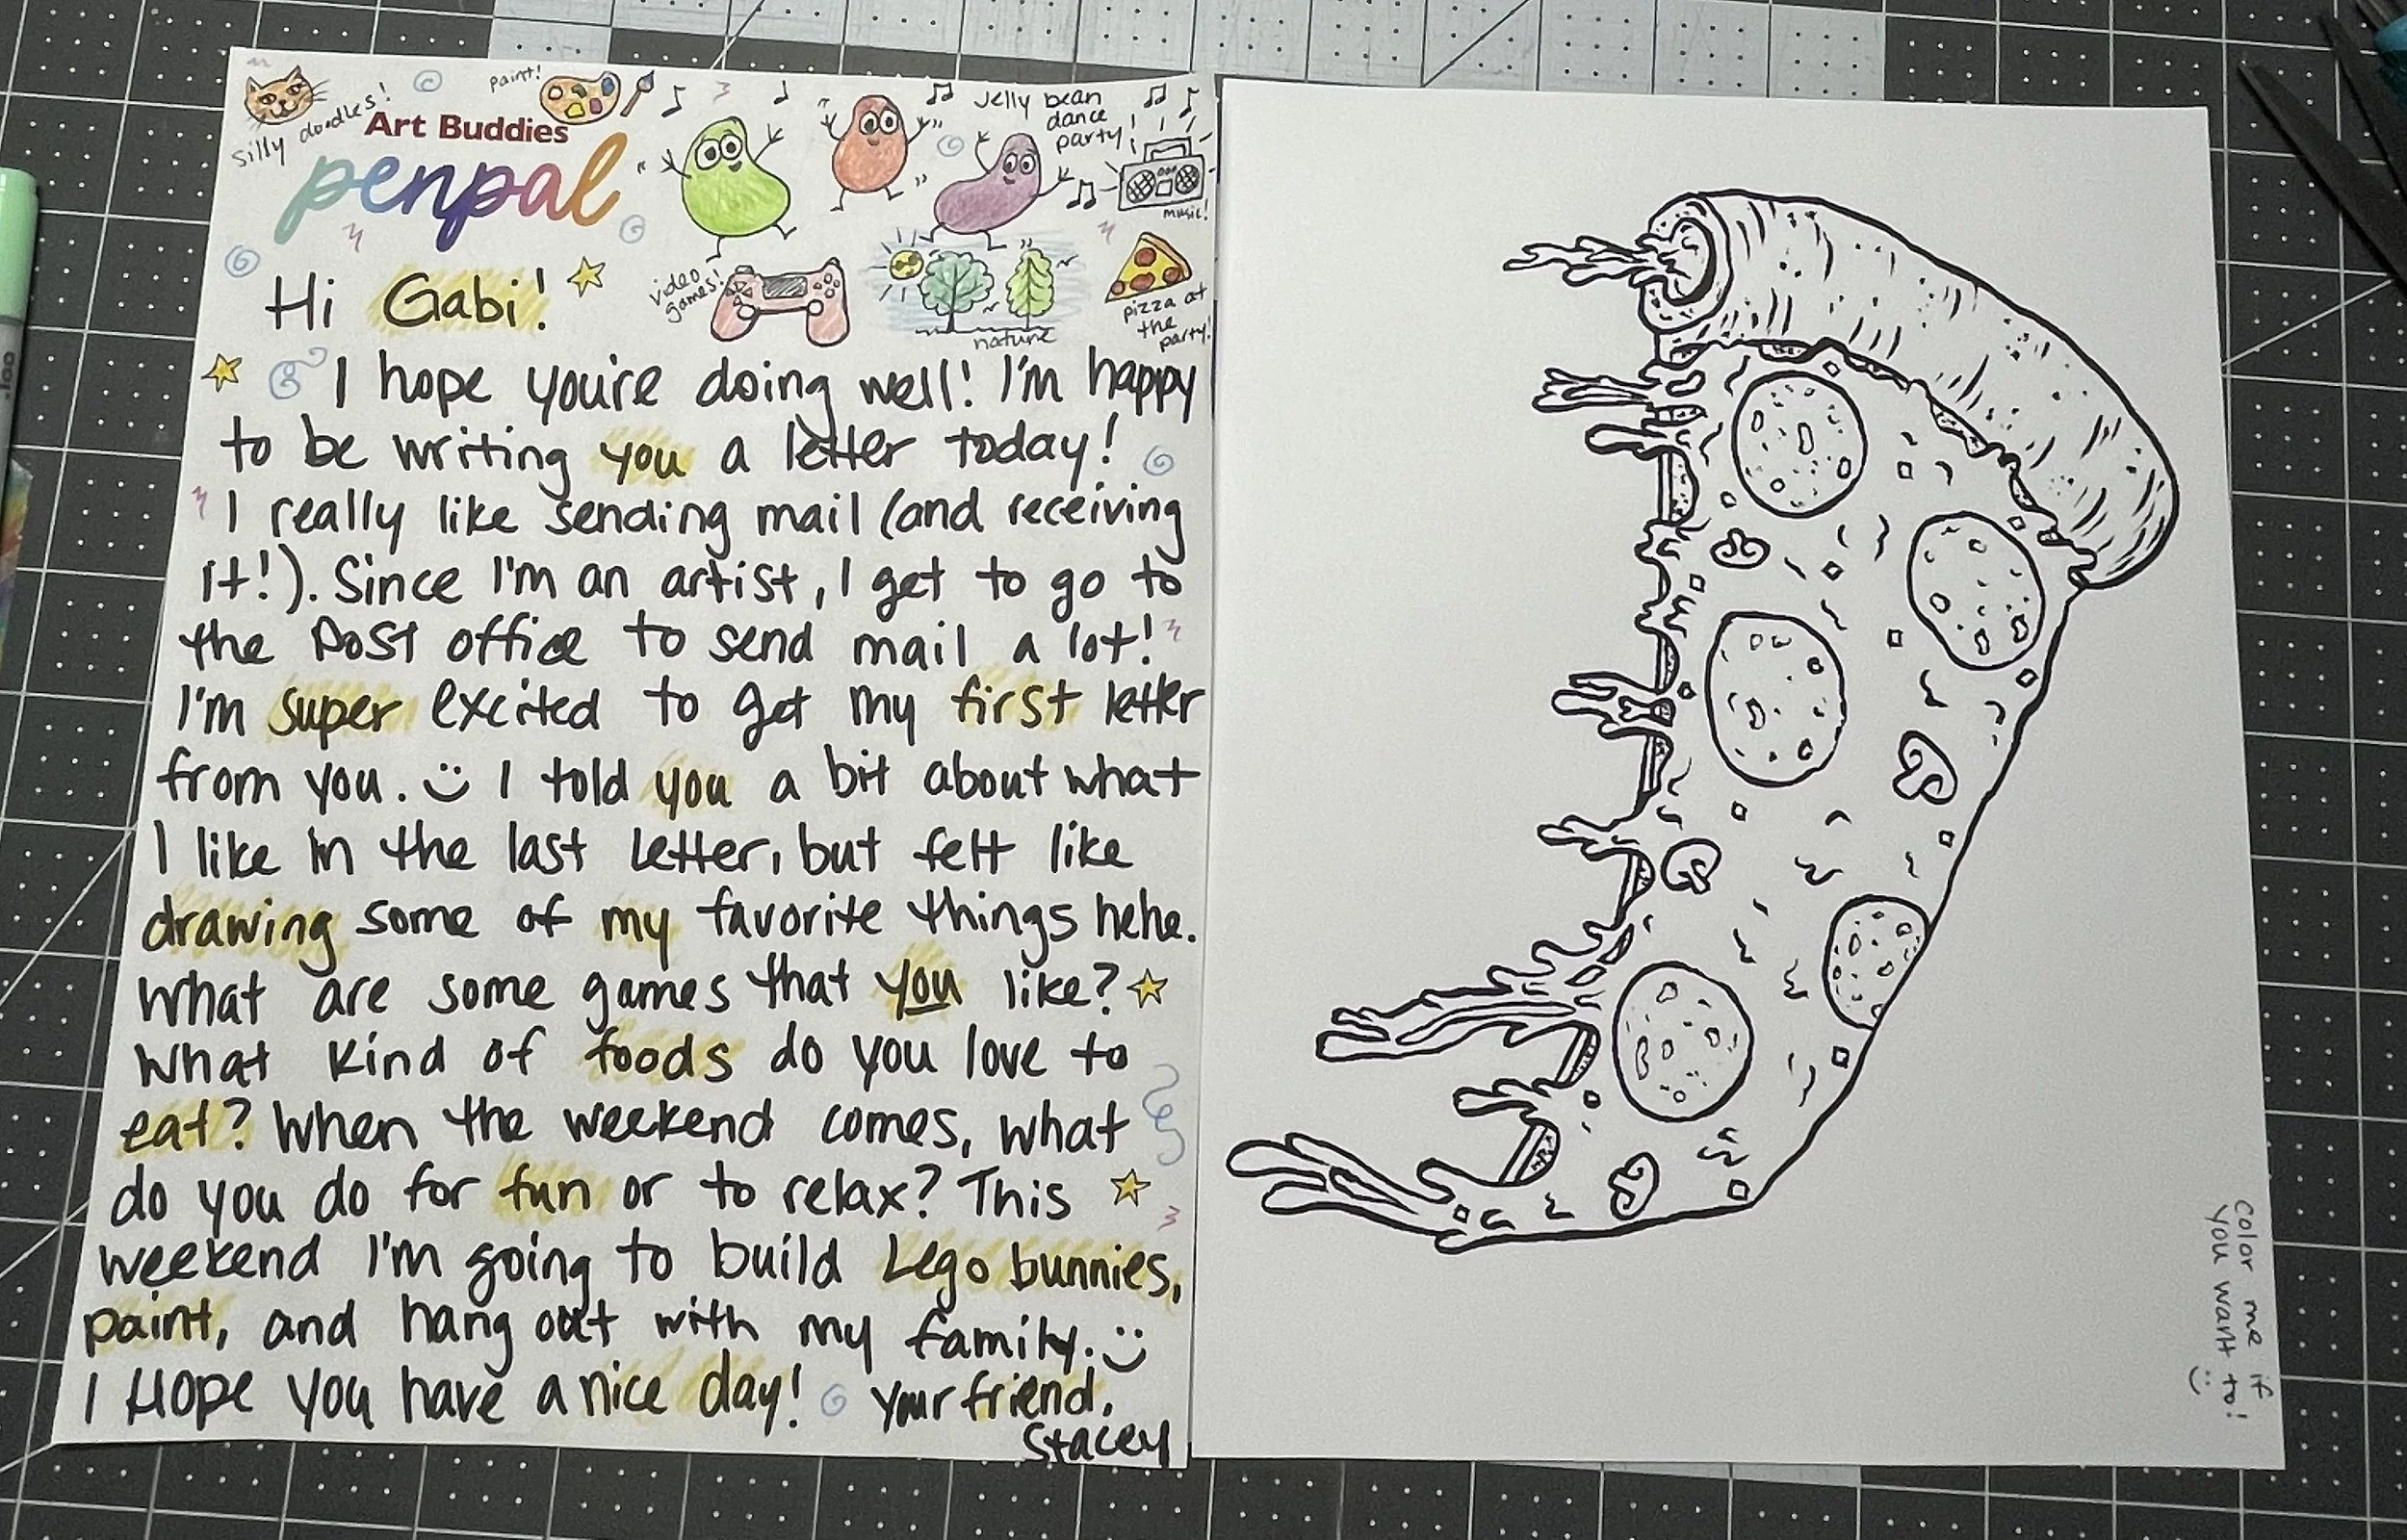 silly doodles!
paint!
Jelly bean
dance
party!
Art Buddies
penpal
music!
video
games!
nature
pizza at
the
party!
Hi Gabi!
I hope you're doing well! I'm happy
to be writing you a letter today!
I really like sending mail (and receiving
it!). Since I'm an artist, I get to go to
the Post office to send mail a lot!
I'm super excited to get my first letter
from you. I told you a bit about what
I like in the last letter, but felt like
drawing some of my favorite things hehe.
What are some games that you like?
What kind of foods do you love to
eat? When the weekend comes, what
do you do for fun or to relax? This
weekend I'm going to build Lego bunnies,
paint, and hang out with my family.
I Hope you have a nice day! Your friend,
Stacey
color me if
you want to!